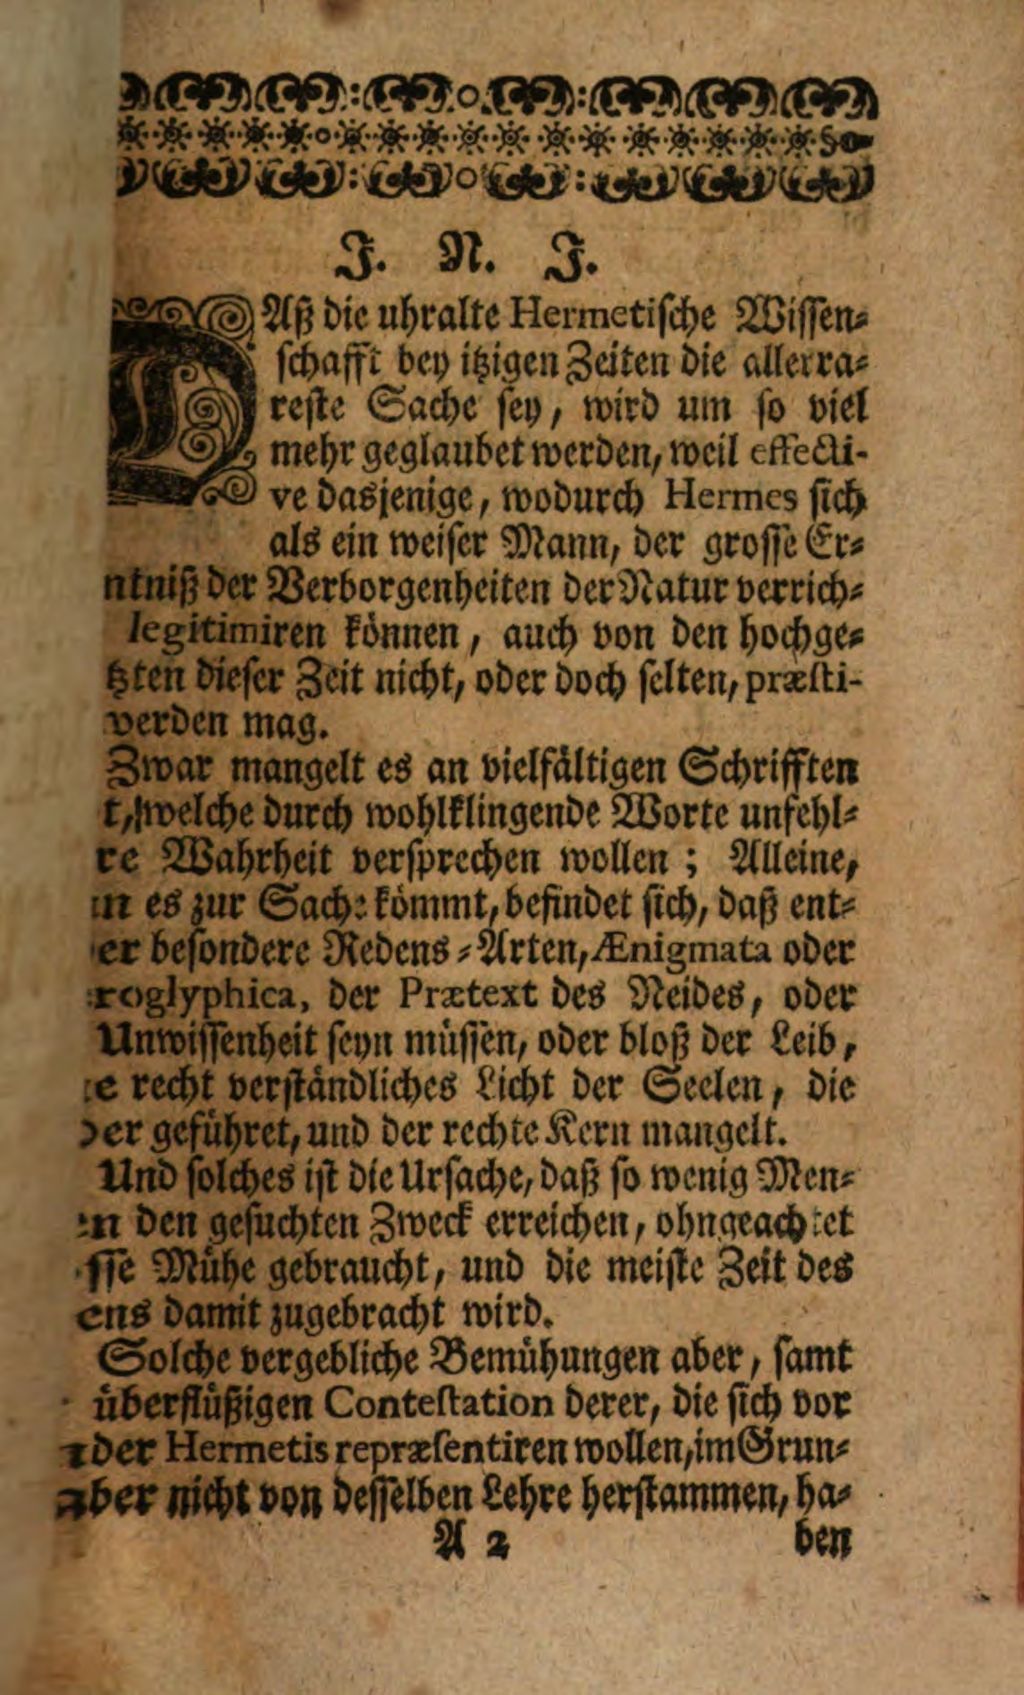 J. N. J.
DAß die uhralte Hermetische Wissen-
schafft bey itzigen Zeiten die allerra-
reste Sache sey, wird um so viel
mehr geglaubet werden, weil effecti-
ve dasjenige, wodurch Hermes sich
als ein weiser Mann, der grosse Er-
ntniß der Verborgenheiten der Natur verrich-
legitimiren können, auch von den hochge-
tzten dieser Zeit nicht, oder doch selten, præsti-
werden mag.
Zwar mangelt es an vielfältigen Schrifften
t, welche durch wohlklingende Worte unfehl-
re Wahrheit versprechen wollen; Alleine,
nn es zur Sache kömmt, befindet sich, daß ent-
er besondere Redens-Arten, Ænigmata oder
roglyphica, der Prætext des Neides, oder
Unwissenheit seyn müssen, oder bloß der Leib,
e recht verständliches Licht der Seelen, die
der geführet, und der rechte Kern mangelt.
Und solches ist die Ursache, daß so wenig Men-
en den gesuchten Zweck erreichen, ohngeachtet
sse Mühe gebraucht, und die meiste Zeit des
ens damit zugebracht wird.
Solche vergebliche Bemühungen aber, samt
überflüßigen Contestation derer, die sich vor
der Hermetis repræsentiren wollen, im Grun-
aber nicht von desselben Lehre herstammen, ha-
A 2 ben